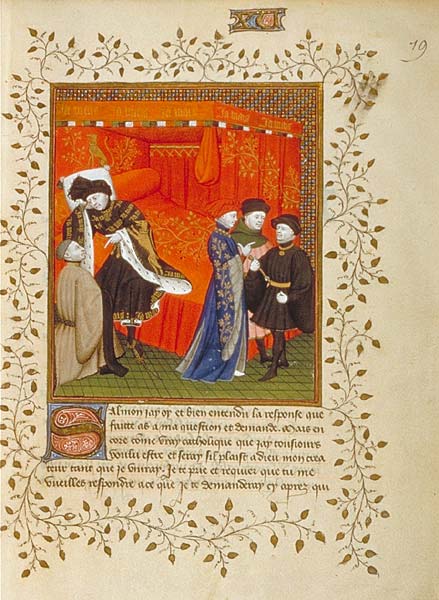 19
Salmon jay oy et bien entendu la response que
faitte as a ma question et demande. Mais en
core come vray catholique que jay tousiours
voulu estre et seray sil plaist a dieu mon crea
teur tant que je vivray. Je te prie et requier que tu me
vueilles respondre a ce que je te demanderay cy aprez qui